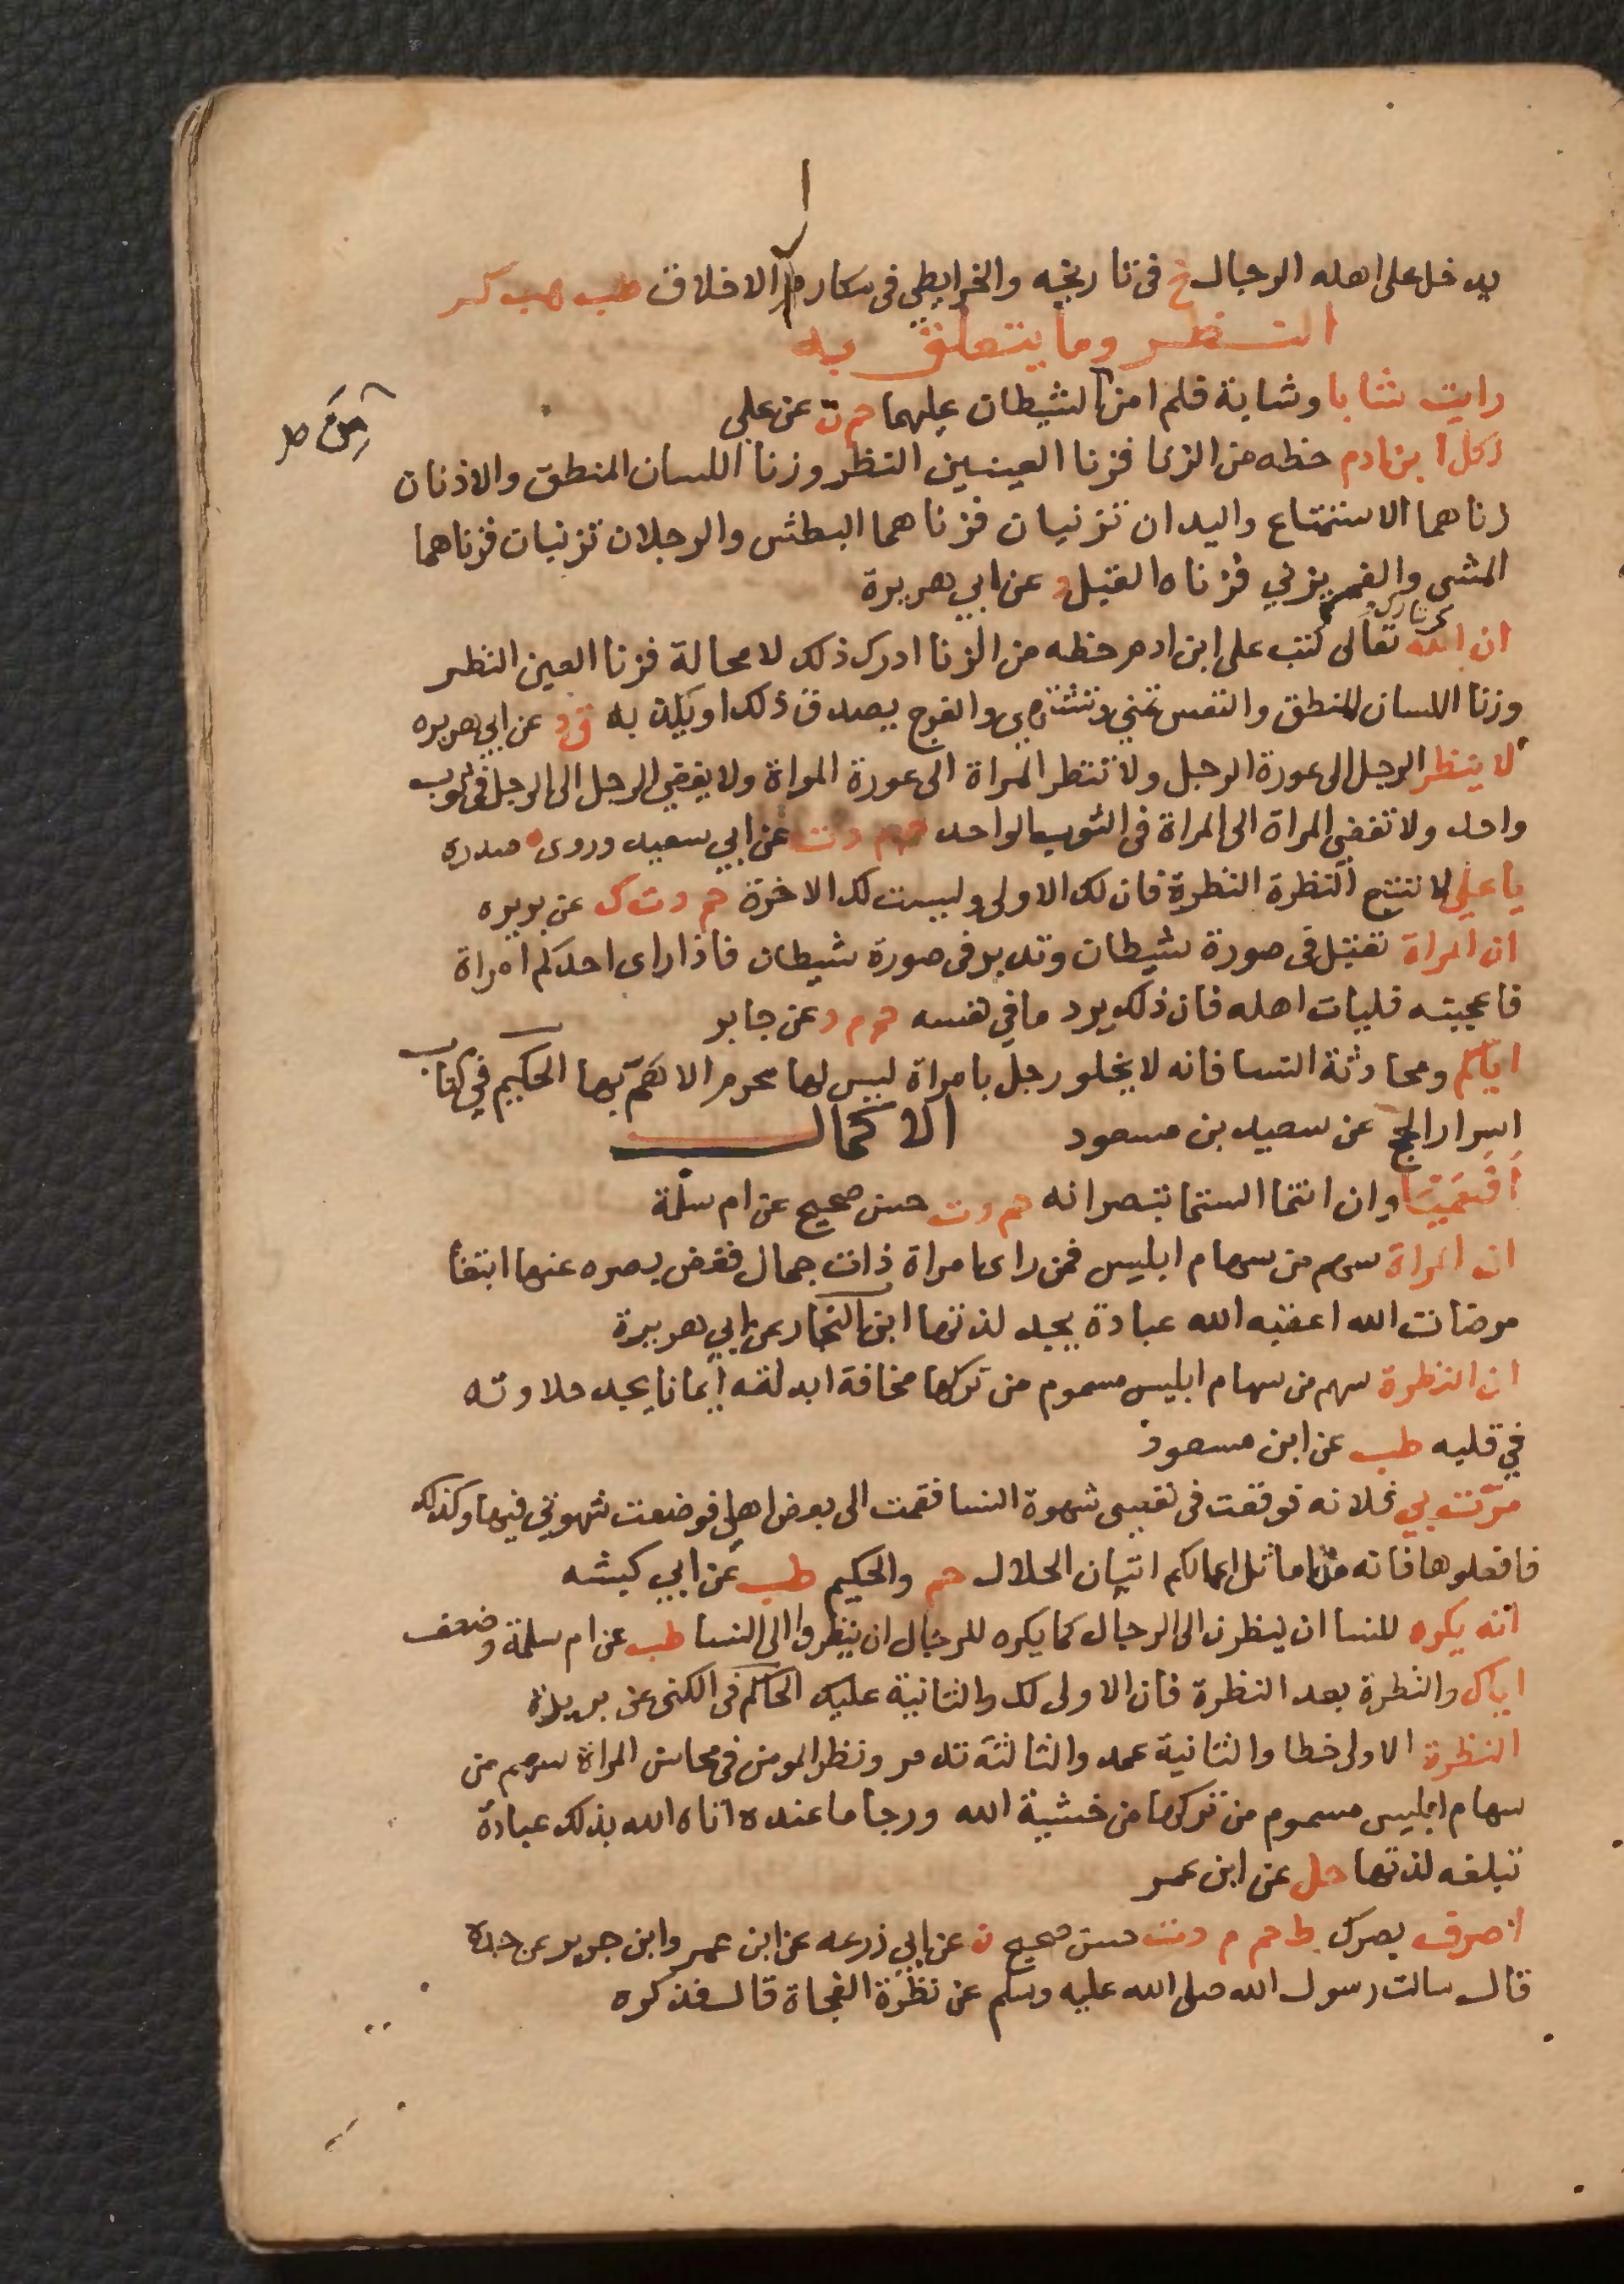 يدخل على اهله الرجال خ في تاريخه والخرايطي في مكارم الاخلاق طب هب كر
النظر وما يتعلق به
رايت شابا وشابة فلم امن الشيطان عليهما حم ت عن علي
لكل ابن ادم حظه من الزنا فزنا العينين النظر وزنا اللسان المنطق والاذنان
زناهما الاستمتاع واليدان تزنيان فزناهما البطش والرجلان تزنيان فزناهما
المشي والفم يزني فزناه القبل د عن ابي هريرة
ان الله تعالى كتب على ابن ادم حظه من الزنا ادرك ذلك لا محالة فزنا العين النظر
وزنا اللسان المنطق والنفس تمني وتشتهي والفرج يصدق ذلك او يكذبه ق د عن ابي هريره
لا ينظر الرجل الى عورة الرجل ولا تنظر المراة الى عورة المراة ولا يفضي الرجل الى الرجل في ثوب
واحد ولا تفضي المراة الى المراة في الثوب الواحد حم م د ت عن ابي سعيد وروى ه صدره
يا علي لا تتبع النظرة النظرة فان لك الاولى وليست لك الاخرة حم د ت ك عن بريره
ان المراة تقبل في صورة شيطان وتدبر في صورة شيطان فاذا راى احدكم امراة
فاعجبته فليات اهله فان ذلك يرد ما في نفسه حم م د عن جابر
اياكم ومحادثة النسا فانه لا يخلو رجل بامراة ليس لها محرم الا هم بها الحكيم في كتاب
اسرار الحج عن سعيد بن مسعود الاكمال
افعميتا وان انتما الستما تبصرانه حم د ت حسن صحيح عن ام سلمة
ان المراة سهم من سهام ابليس فمن راى امراة ذات جمال فغض بصره عنها ابتغا
مرضات الله اعقبه الله عبادة يجد لذتها ابن النجار عن ابي هريرة
ان النظرة سهم من سهام ابليس مسموم من تركها مخافة ابدلته ايمانا يجد حلاوته
في قلبه طب عن ابن مسعود
مرت بي فلانه فوقعت في نفسي شهوة النسا فقمت الى بعض اهلي فوضعت شهوتي فيها وكذلك
فافعلوها فانه من اماثل اعمالكم اتيان الحلال حم والحكيم طب عن ابي كبشه
انه يكره للنسا ان ينظرن الى الرجال كما يكره للرجال ان ينظروا الى النسا طب عن ام سلمة وضعف
اياك والنظرة بعد النظرة فان الاولى لك والثانية عليك الحاكم في الكنى عن بريدة
النظرة الاولى خطا والثانية عمد والثالثة تدمر ونظر المومن في محاسن المراة سهم من
سهام ابليس مسموم من تركها من خشية الله ورجا ما عنده اتاه الله بذلك عبادة
تبلغه لذتها حل عن ابن عمر
اصرف بصرك ط حم م د ت حسن صحيح ن عن ابي زرعه عن ابن عمر وابن جرير عن جده
قال سالت رسول الله صلى الله عليه وسلم عن نظرة الفجاة قال فذكره